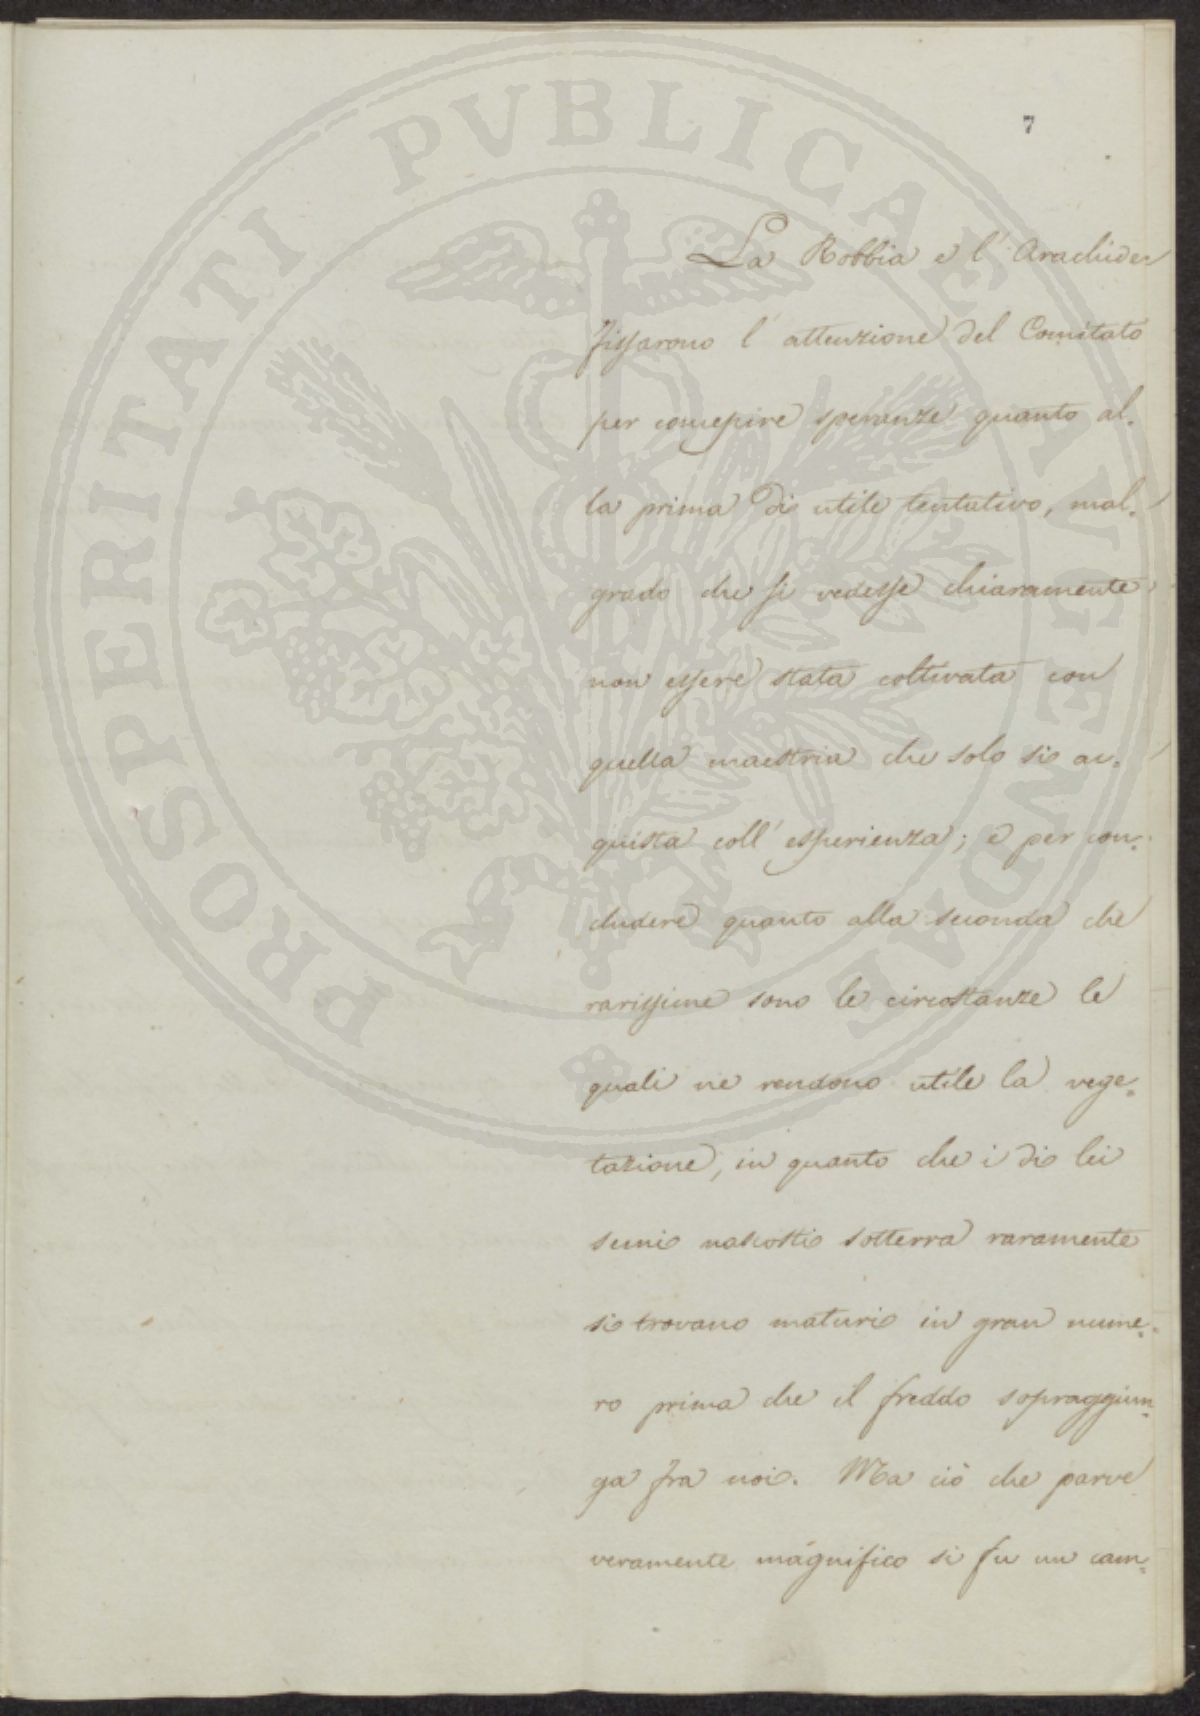 7
La Robbia e l'Arachide
fissarono l'attenzione del Comitato
per concepire speranze quanto al=
la prima di utile tentativo, mal=
grado che si vedesse chiaramente
non essere stata coltivata con
quella maestria che solo si ac=
quista coll'esperienza; e per con=
cludere quanto alla seconda che
rarissime sono le circostanze le
quali ne rendono utile la vege=
tazione, in quanto che i di lei
semi nascosti sotterra raramente
si trovano maturi in gran nume=
ro prima che il freddo sopraggiun=
ga fra noi. Ma ciò che parve
veramente magnifico si fu un cam=
PROSPERITATI PVBLICAE AVGENDAE